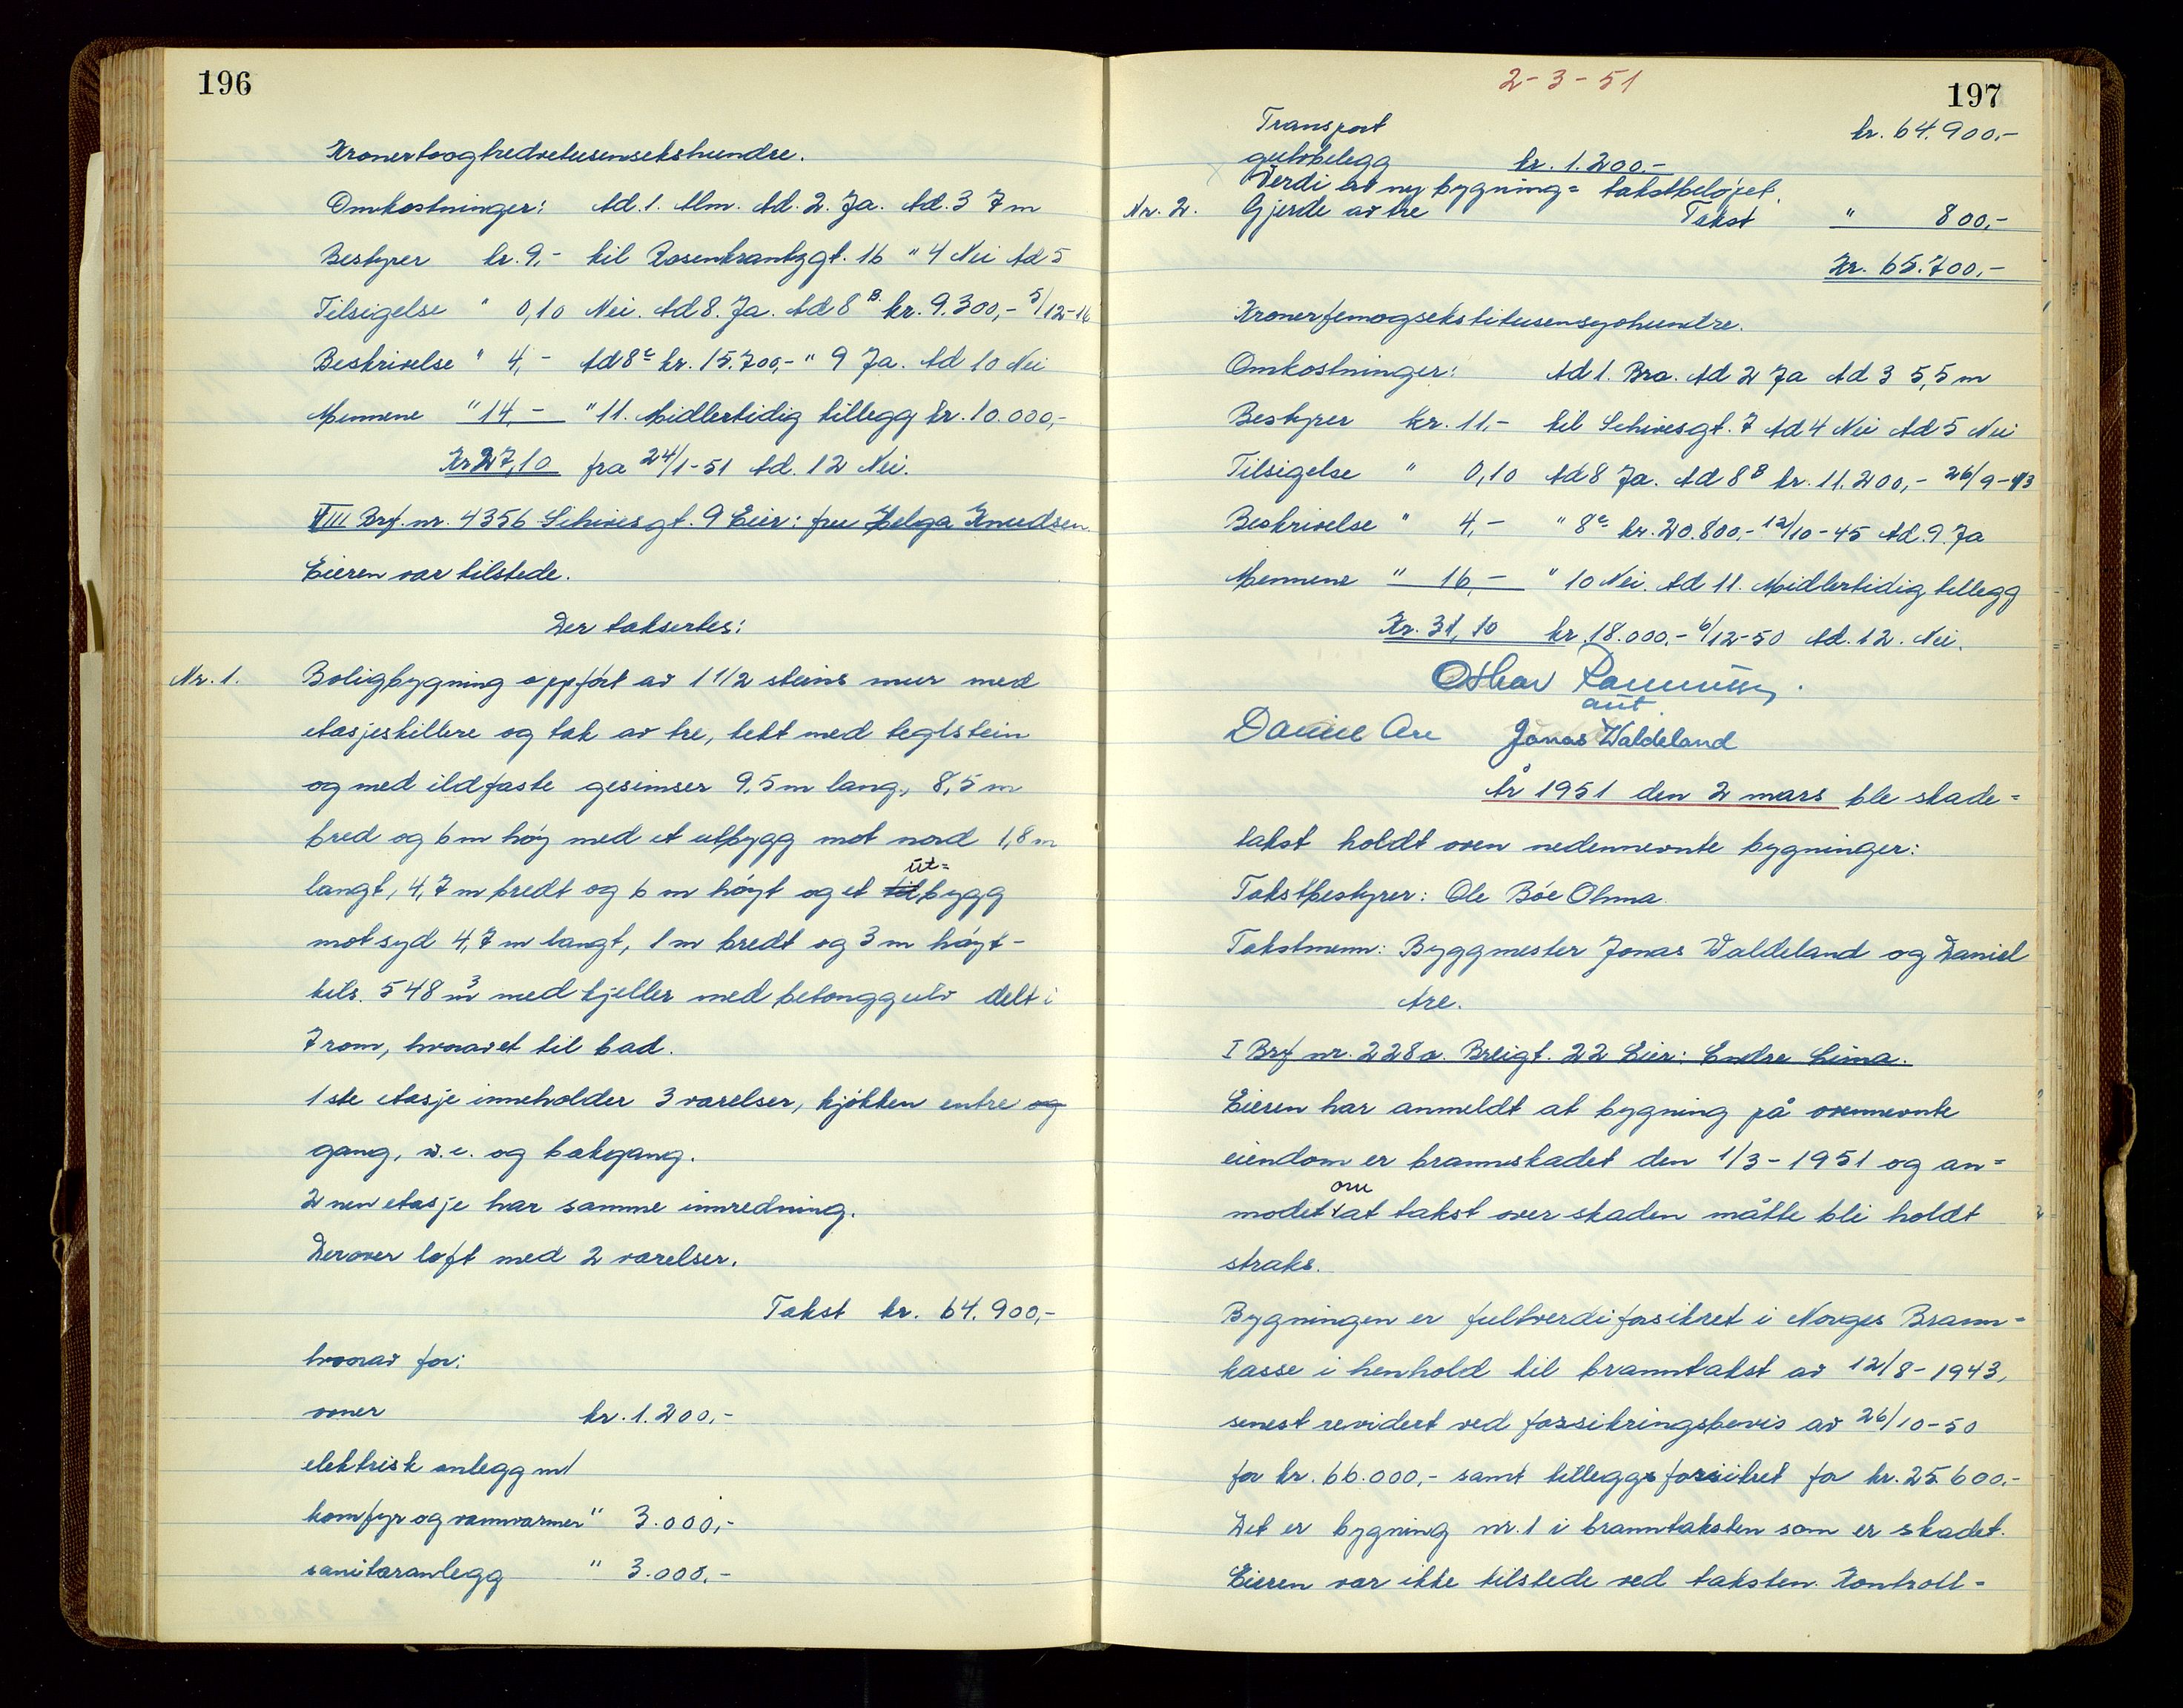 196
Kronertoogtredvetusenseks­hundre.
Omkostninger: Ad. 1. Alm. Ad. 2. Ja. Ad. 3 7 m
Bestyrer kr. 9,- til Rosenkrantzgt. 16 " 4 Nei Ad 5
Tilsigelse " 0,10 Nei. Ad 8. Ja. Ad 8 B. kr. 9.300,- 5/12-16
Beskrivelse " 4,- Ad 8 c kr. 15.700,- " 9 Ja. Ad 10 Nei
Mennene " 14,- " 11. Midlertidig tillegg kr. 10.000,-
Kr 27,10 fra 24/1-51 Ad. 12 Nei.
VIII Brf. nr. 4356 Schivesgt. 9 Eier: fru Helga Knudsen.
Eieren var tilstede.
Der taksertes:
Nr. 1. Boligbygning oppført av 1 1/2 steins mur med
etasjeskillere og tak av tre, tekt med teglstein
og med ildfaste gesimser 9,5 m lang, 8,5 m
bred og 6 m høy med et utbygg mot nord 1,8 m
langt, 4,7 m bredt og 6 m høyt og et til ut=bygg
mot syd 4,7 m langt, 1 m bredt og 3 m høyt -
tils. 548 m3 med kjeller med betonggulv delt i
7 rom, hvorav et til bad.
1ste etasje inneholder 3 værelser, kjøkken entre og
gang, w.c. og bakgang.
2nen etasje har samme innredning.
Derover loft med 2 værelser.
Takst kr. 64.900,-
hvorav for:
ovner kr. 1.200,-
elektrisk anlegg m/
komfyr og vannvarmer " 3.000,-
sanitæranlegg " 3.000,-
2-3-51
197
Transport kr. 64.900,-
gulvbelegg kr. 1.200,-
Verdi av ny bygning = takstbeløpet.
Nr. 2. Gjerde av tre Takst " 800,-
Kr. 65.700,-
Kronerfemogsekstitusensyvhundre.
Omkostninger: Ad 1. Bra. Ad 2 Ja Ad 3 5,5 m
Bestyrer kr. 11,- til Schivesgt. 7 Ad 4 Nei Ad 5 Nei
Tilsigelse " 0,10 Ad 8 Ja. Ad 8 B kr. 11.200,- 26/9-43
Beskrivelse " 4,- " 8 c kr. 20.800,- 12/10-45 Ad. 9. Ja
Mennene " 16,- " 10 Nei. Ad 11. Midlertidig tillegg
Kr. 31,10 kr. 18.000,- 6/12-50 Ad. 12. Nei.
Othar Rasmussen.
aut
Daniel Are Jonas Waldeland
År 1951 den 2 mars ble skade=
takst holdt over nedennevnte bygninger:
Takstbestyrer: Ole Bøe Ohma
Takstmenn: Byggmester Jonas Waldeland og Daniel
Are.
I Brf nr. 228a. Breigt. 22 Eier: Endre Lima.
Eieren har anmeldt at bygning på ovennevnte
eiendom er brannskadet den 1/3-1951 og an=
modet om at takst over skaden måtte bli holdt
straks.
Bygningen er fullverdiforsikret i Norges Brann=
kasse i henhold til branntakst av 12/8-1943,
senest revidert ved forsikringsbevis av 26/10-50
for kr. 66.000,- samt tilleggsforsikret for kr. 25.600,-
Det er bygning nr. 1 i branntaksten som er skadet.
Eieren var ikke tilstede ved taksten. Kontroll=